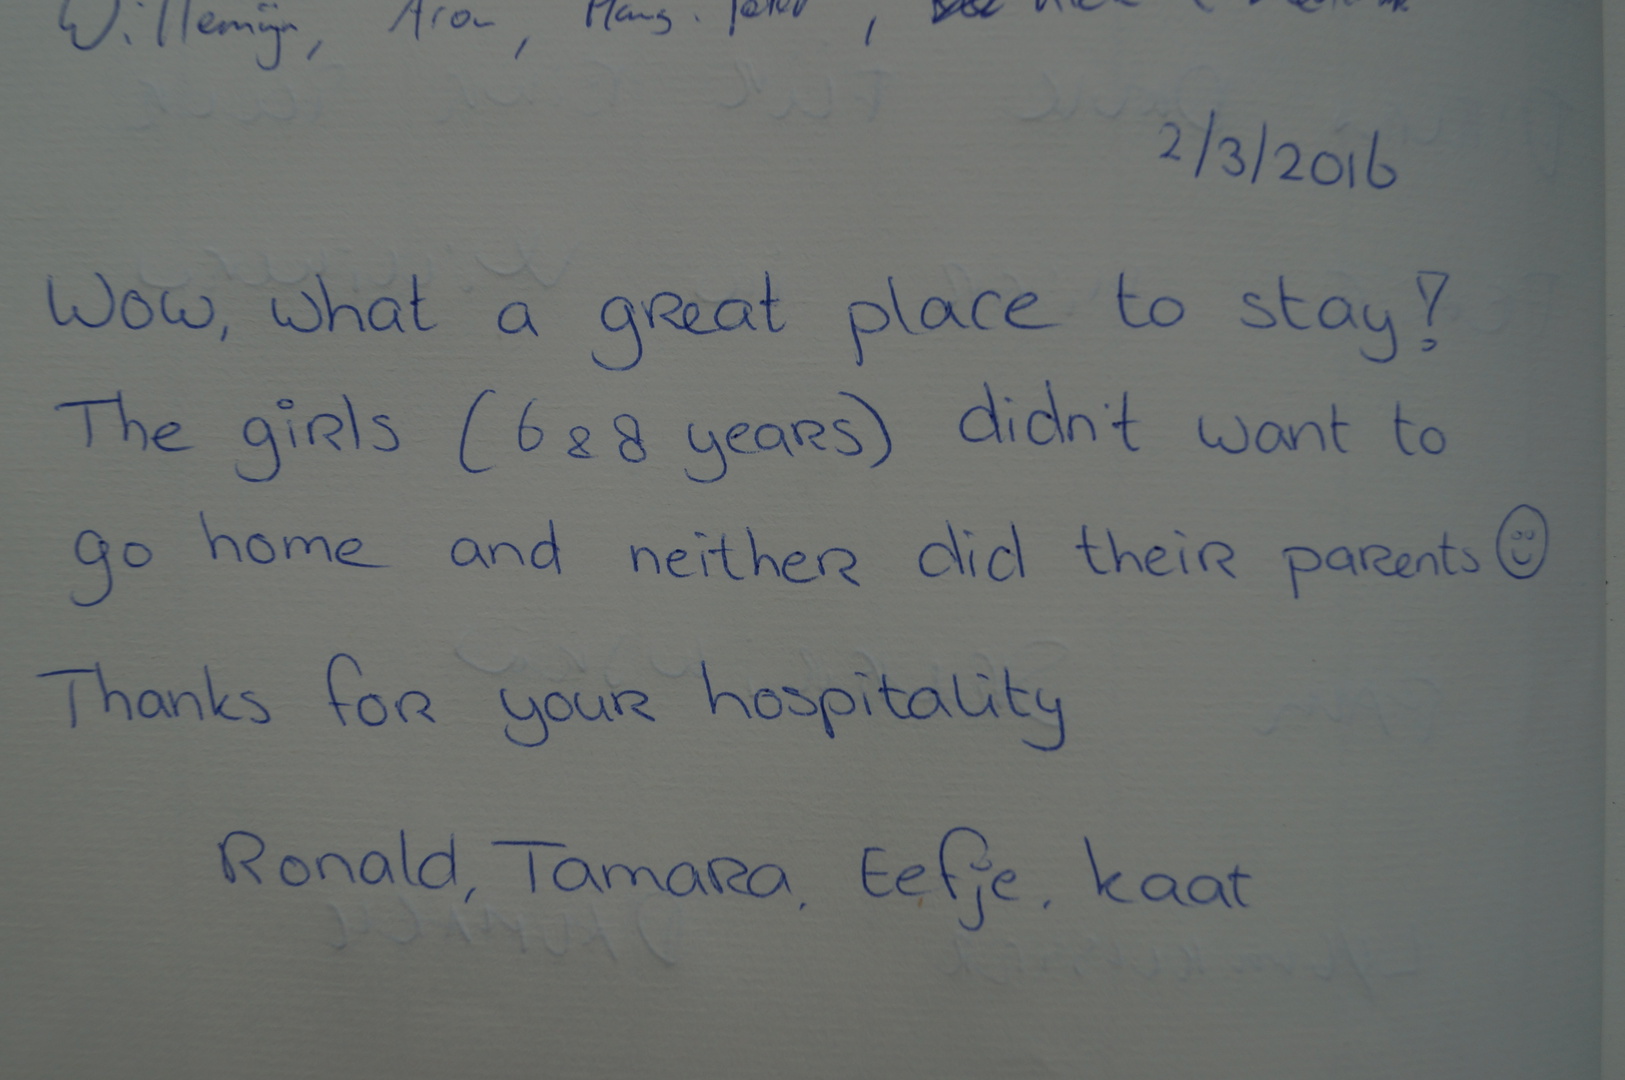 Willemijn, Aron, Hans-Peter,
2/3/2016
Wow, what a great place to stay!
The girls (6 & 8 years) didn't want to
go home and neither did their parents ☺
Thanks for your hospitality
Ronald, Tamara, Eefje, kaat